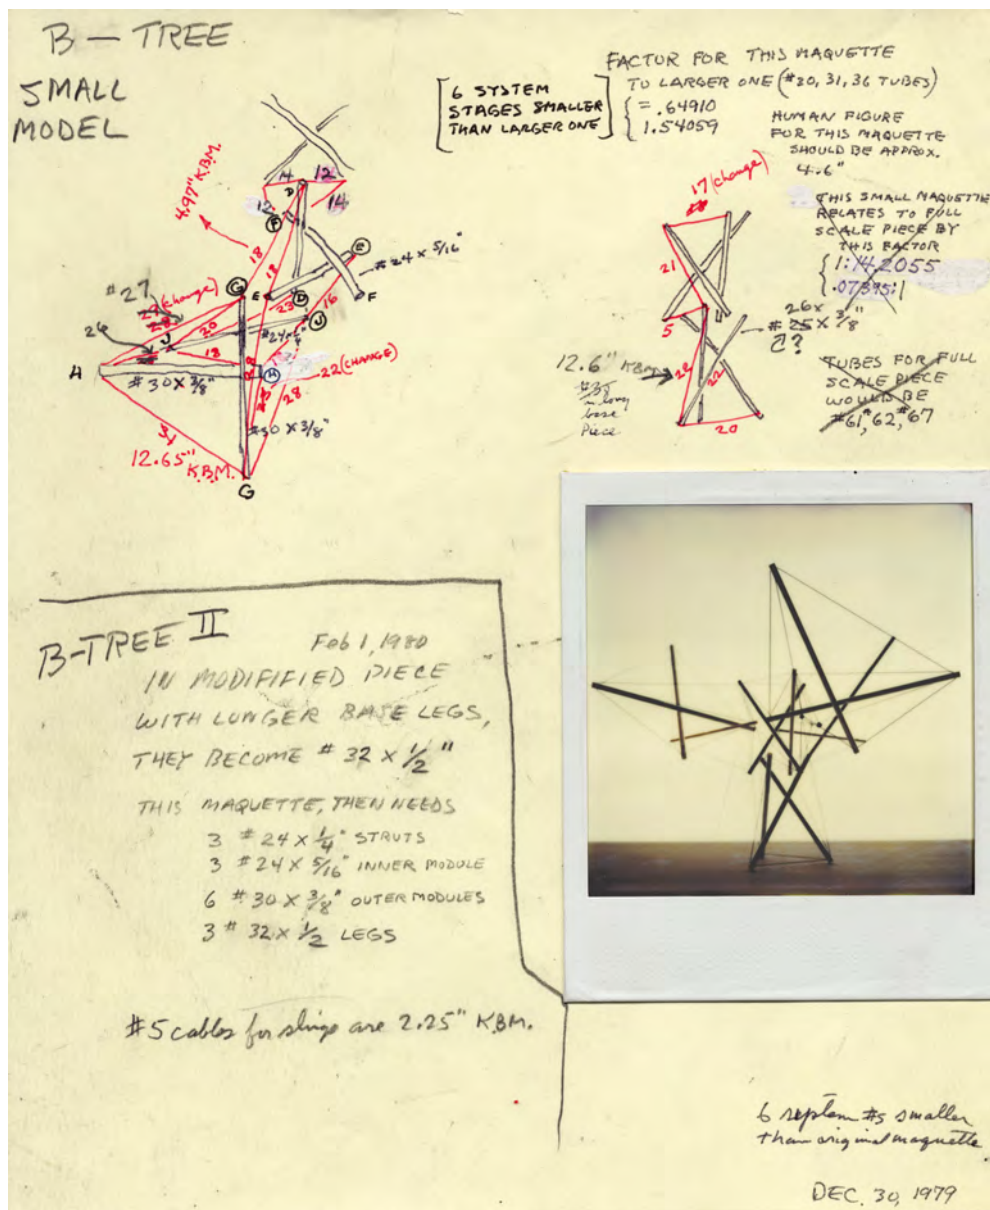 B — TREE
SMALL
MODEL
6 SYSTEM
STAGES SMALLER
THAN LARGER ONE
FACTOR FOR THIS MAQUETTE
TO LARGER ONE (#30, 31, 36 TUBES)
= .64910
1.54059
HUMAN FIGURE
FOR THIS MAQUETTE
SHOULD BE APPROX.
4.6"
THIS SMALL MAQUETTE
RELATES TO FULL
SCALE PIECE BY
THIS FACTOR
1:14.2055
.07395:1
TUBES FOR FULL
SCALE PIECE
WOULD BE
#61, #62, #67
4.97" K.B.M.
14
12
D
12
14
F
18
18
E
#24 x 5/16"
F
#27
(change)
G
E
23
D
16
26
20
J
#24 x
J
18
H
#30 x 3/8"
H
22 (CHANGE)
28
#30 x 3/8"
12.65"
K.B.M.
G
17 (change)
21
5
26 x
#25 x 3/8"
?
12.6" KBM
in long
base
piece
22
22
20
B-TREE II
Feb 1, 1980
IN MODIFIFIED PIECE
WITH LONGER BASE LEGS,
THEY BECOME # 32 x 1/2"
THIS MAQUETTE, THEN NEEDS
3 # 24 x 1/4" STRUTS
3 # 24 x 5/16" INNER MODULE
6 # 30 x 3/8" OUTER MODULES
3 # 32 x 1/2 LEGS
#5 cables for slings are 2.25" K.B.M.
6 system #s smaller
than original maquette.
DEC. 30, 1979